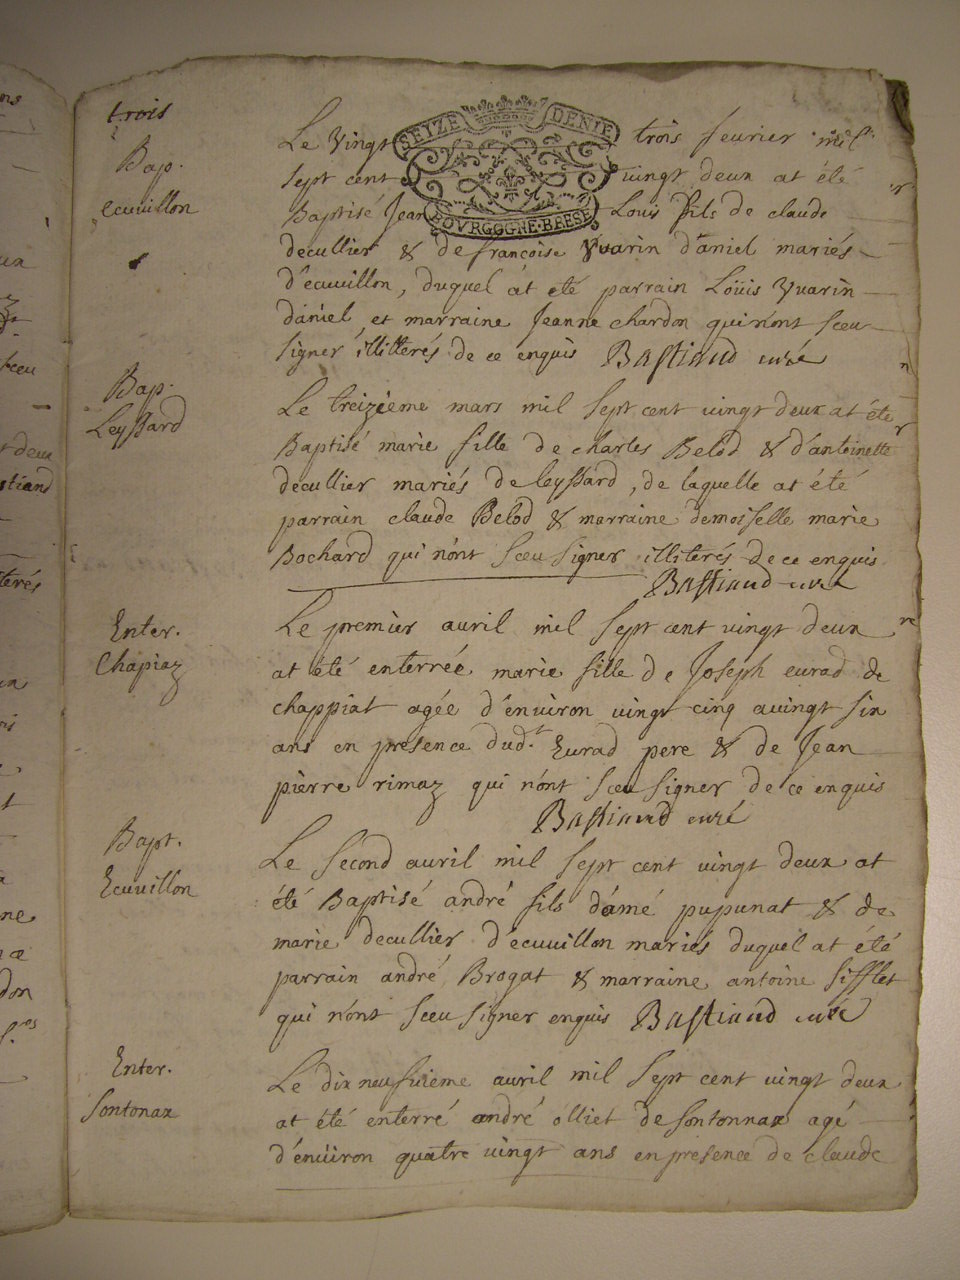 trois
Bap.
ecuvillon
SEYZE DENIE
BOVRGOGNE·BRESE
Le vingt trois feurier mil
sept cent vingt deux at été
Baptisé Jean Louis fils de claude
decullier & de francoise yvarin daniel mariés
d'écuvillon, duquel at eté parrain Loüis yvarin
daniel et marraine Jeanne chardon qui n'ont sceu
signer illitterés de ce enquis Bastiand curé
Bap.
Leyssard
Le treizieme mars mil sept cent vingt deux at été
Baptisé marie fille de charles Belod & d'antoinette
decullier mariés de leyssard, de laquelle at été
parrain claude Belod & marraine demoiselle marie
Bochard qui n'ont sceu signer illiterés de ce enquis
Bastiand curé
Enter.
Chapiaz
Le premier auril mil sept cent vingt deux
at été enterrée marie fille de Joseph eurad de
chappiat agée d'enuiron vingt cinq a vingt six
ans en presence dud.t Eurad pere & de Jean
pierre rimaz qui n'ont sceu signer de ce enquis
Bastiand curé
Bapt.
Ecuvillon
Le second auril mil sept cent vingt deux at
été Baptisé andré fils d'amé pupunat & de
marie decullier d'ecuvillon mariés duquel at été
parrain andré Brogat & marraine antoine sifflet
qui n'ont sceu signer enquis Bastiand curé
Enter.
Sontonax
Le dix neufuieme auril mil sept cent vingt deux
at été enterré andré olliet de sontonnax agé
d'enuiron quatre vingt ans en presence de claude